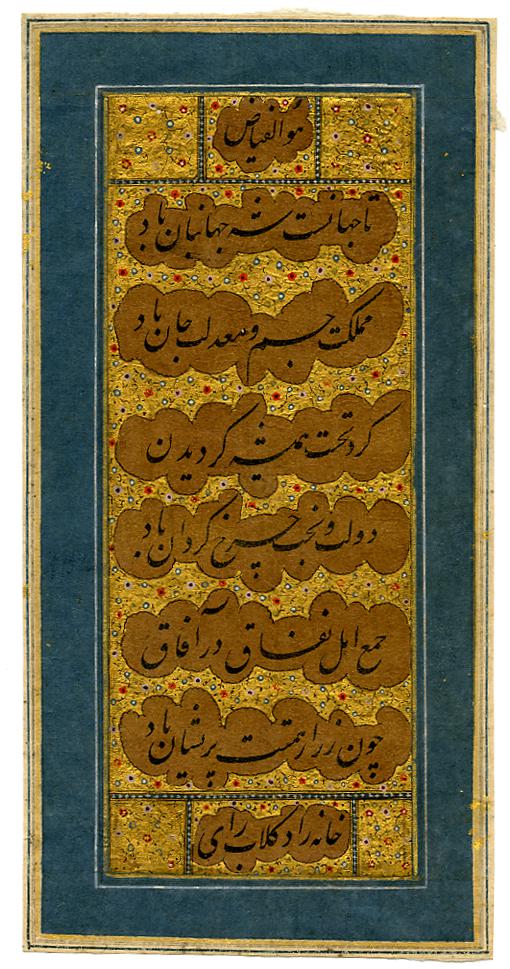 هو الفیاض
تا جهانست شه جهانبان باد
مملکت جسم و معدلت جان باد
کرد تخت همیشه کردیدن
دولت و بخت چرخ کردان باد
جمع اهل نفاق در آفاق
چون زر از همتت پریشان باد
خانه زاد کلاب رای